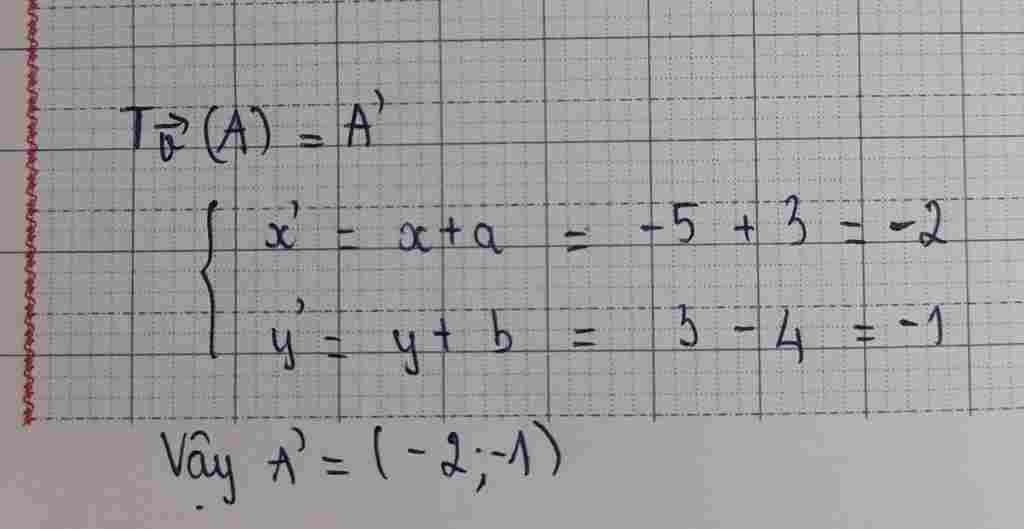 T v⃗ (A) = A'
{ x' = x + a = -5 + 3 = -2
y' = y + b = 3 - 4 = -1
Vậy A' = (-2; -1)